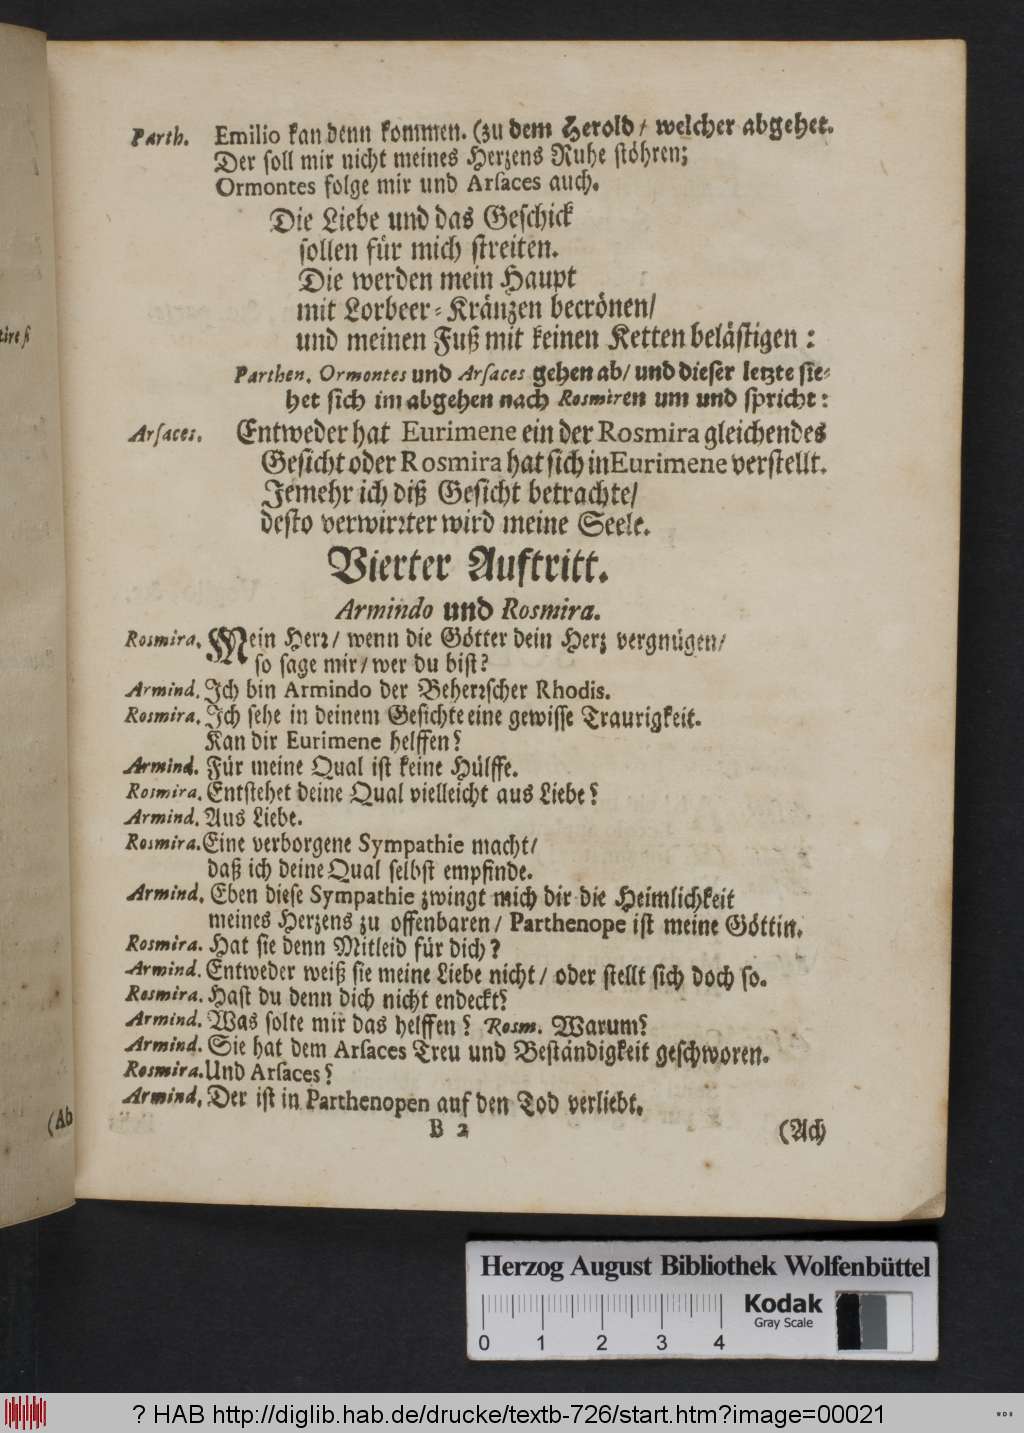 Parth. Emilio kan denn kommen. (zu dem Herold / welcher abgehet.
Der soll mir nicht meines Herzens Ruhe stöhren;
Ormontes folge mir und Arsaces auch.
Die Liebe und das Geschick
sollen für mich streiten.
Die werden mein Haupt
mit Lorbeer-Kränzen becrönen/
und meinen Fuß mit keinen Ketten belästigen:
Parthen. Ormontes und Arsaces gehen ab/ und dieser letzte sie-
het sich im abgehen nach Rosmiren um und spricht:
Arsaces. Entweder hat Eurimene ein der Rosmira gleichendes
Gesicht oder Rosmira hat sich in Eurimene verstellt.
Jemehr ich diß Gesicht betrachte/
desto verwirrter wird meine Seele.
Vierter Auftritt.
Armindo und Rosmira.
Rosmira. Mein Herr/ wenn die Götter dein Herz vergnügen/
so sage mir/ wer du bist?
Armind. Ich bin Armindo der Beherrscher Rhodis.
Rosmira. Ich sehe in deinem Gesichte eine gewisse Traurigkeit.
Kan dir Eurimene helffen?
Armind. Für meine Qual ist keine Hülffe.
Rosmira. Entstehet deine Qual vielleicht aus Liebe?
Armind. Aus Liebe.
Rosmira. Eine verborgene Sympathie macht/
daß ich deine Qual selbst empfinde.
Armind. Eben diese Sympathie zwingt mich dir die Heimlichkeit
meines Herzens zu offenbaren/ Parthenope ist meine Göttin.
Rosmira. Hat sie denn Mitleid für dich?
Armind. Entweder weiß sie meine Liebe nicht/ oder stellt sich doch so.
Rosmira. Hast du denn dich nicht endeckt?
Armind. Was solte mir das helffen? Rosm. Warum?
Armind. Sie hat dem Arsaces Treu und Beständigkeit geschworen.
Rosmira. Und Arsaces?
Armind. Der ist in Parthenopen auf den Tod verliebt.
B 2 (Ach
(Ab
Herzog August Bibliothek Wolfenbüttel
Kodak
Gray Scale
0 1 2 3 4
? HAB http://diglib.hab.de/drucke/textb-726/start.htm?image=00021